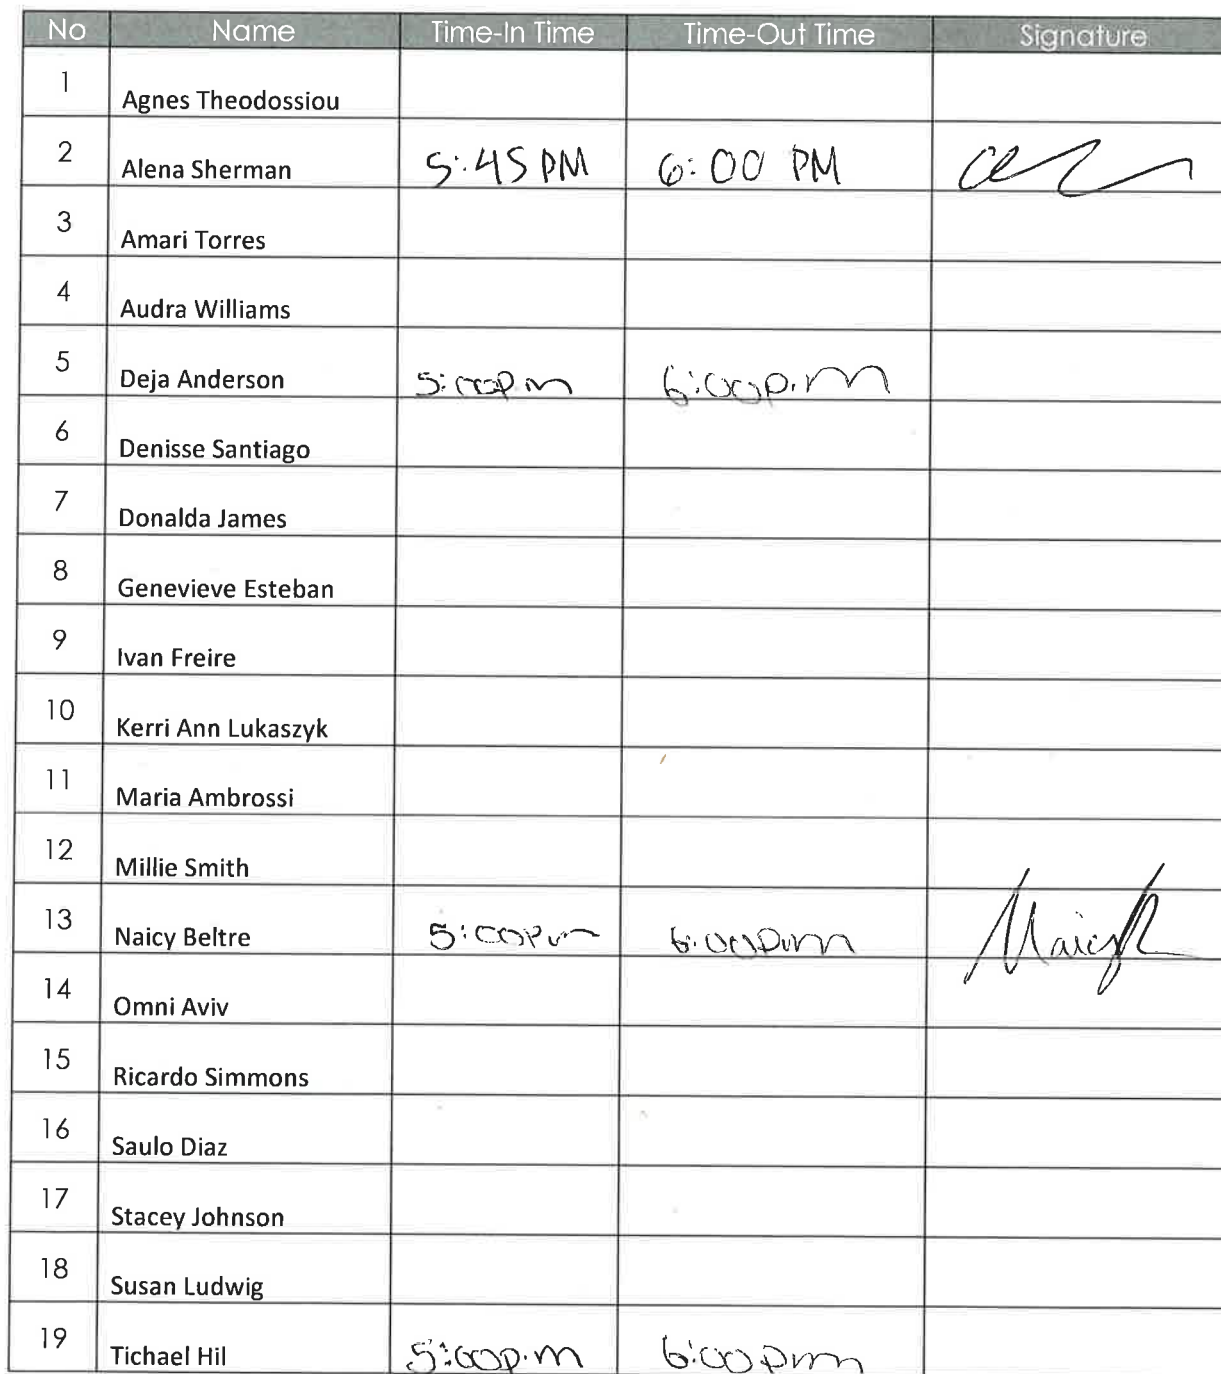 No Name Time-In Time Time-Out Time Signature
1 Agnes Theodossiou
2 Alena Sherman 5:45 PM 6:00 PM
3 Amari Torres
4 Audra Williams
5 Deja Anderson 5:00p.m 6:00p.m
6 Denisse Santiago
7 Donalda James
8 Genevieve Esteban
9 Ivan Freire
10 Kerri Ann Lukaszyk
11 Maria Ambrossi
12 Millie Smith
13 Naicy Beltre 5:00p.m 6:00p.m
14 Omni Aviv
15 Ricardo Simmons
16 Saulo Diaz
17 Stacey Johnson
18 Susan Ludwig
19 Tichael Hil 5:00p.m 6:00p.m